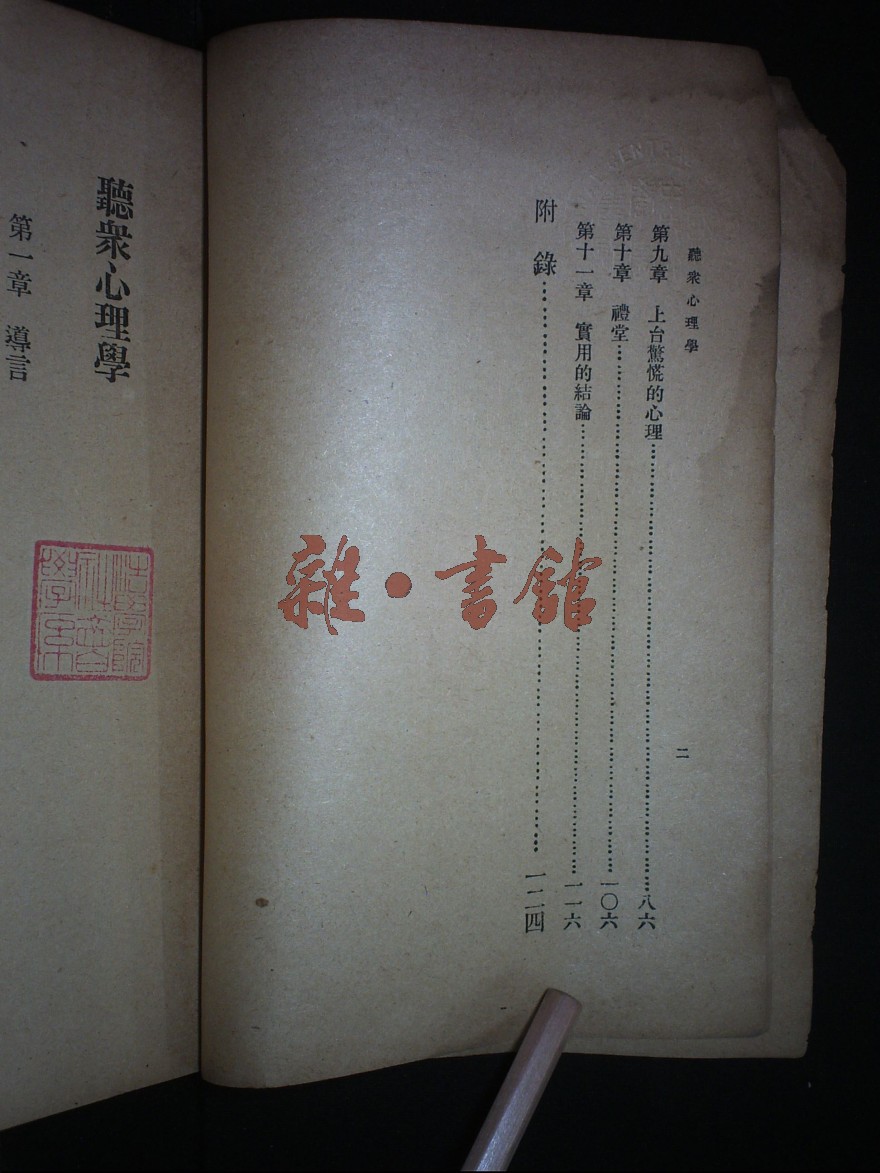 聽衆心理學
二
第九章　上台驚慌的心理……八六
第十章　禮堂……一〇六
第十一章　實用的結論……一一六
附錄……一二四
雜·書館
聽衆心理學
第一章　導言